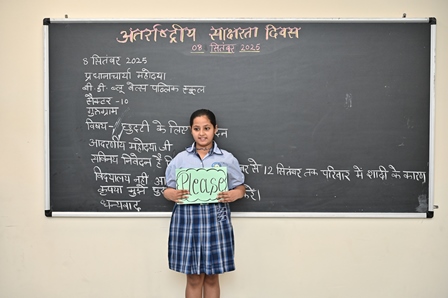 अतर्राष्ट्रीय साक्षरता दिवस
08 सितंबर 2025
8 सितंबर 2025
प्रधानाचार्या महोदया
बी.डी. ब्लू बेल्स पब्लिक स्कूल
सैक्टर -10
गुरुग्राम
विषय - छुट्टी के लिए
आदरणीय महोदया जी
सविनय निवेदन है से 12 सितंबर तक परिवार में शादी के कारण
विद्यालय नहीं
कृपया मुझे करें।
धन्यवाद
Please